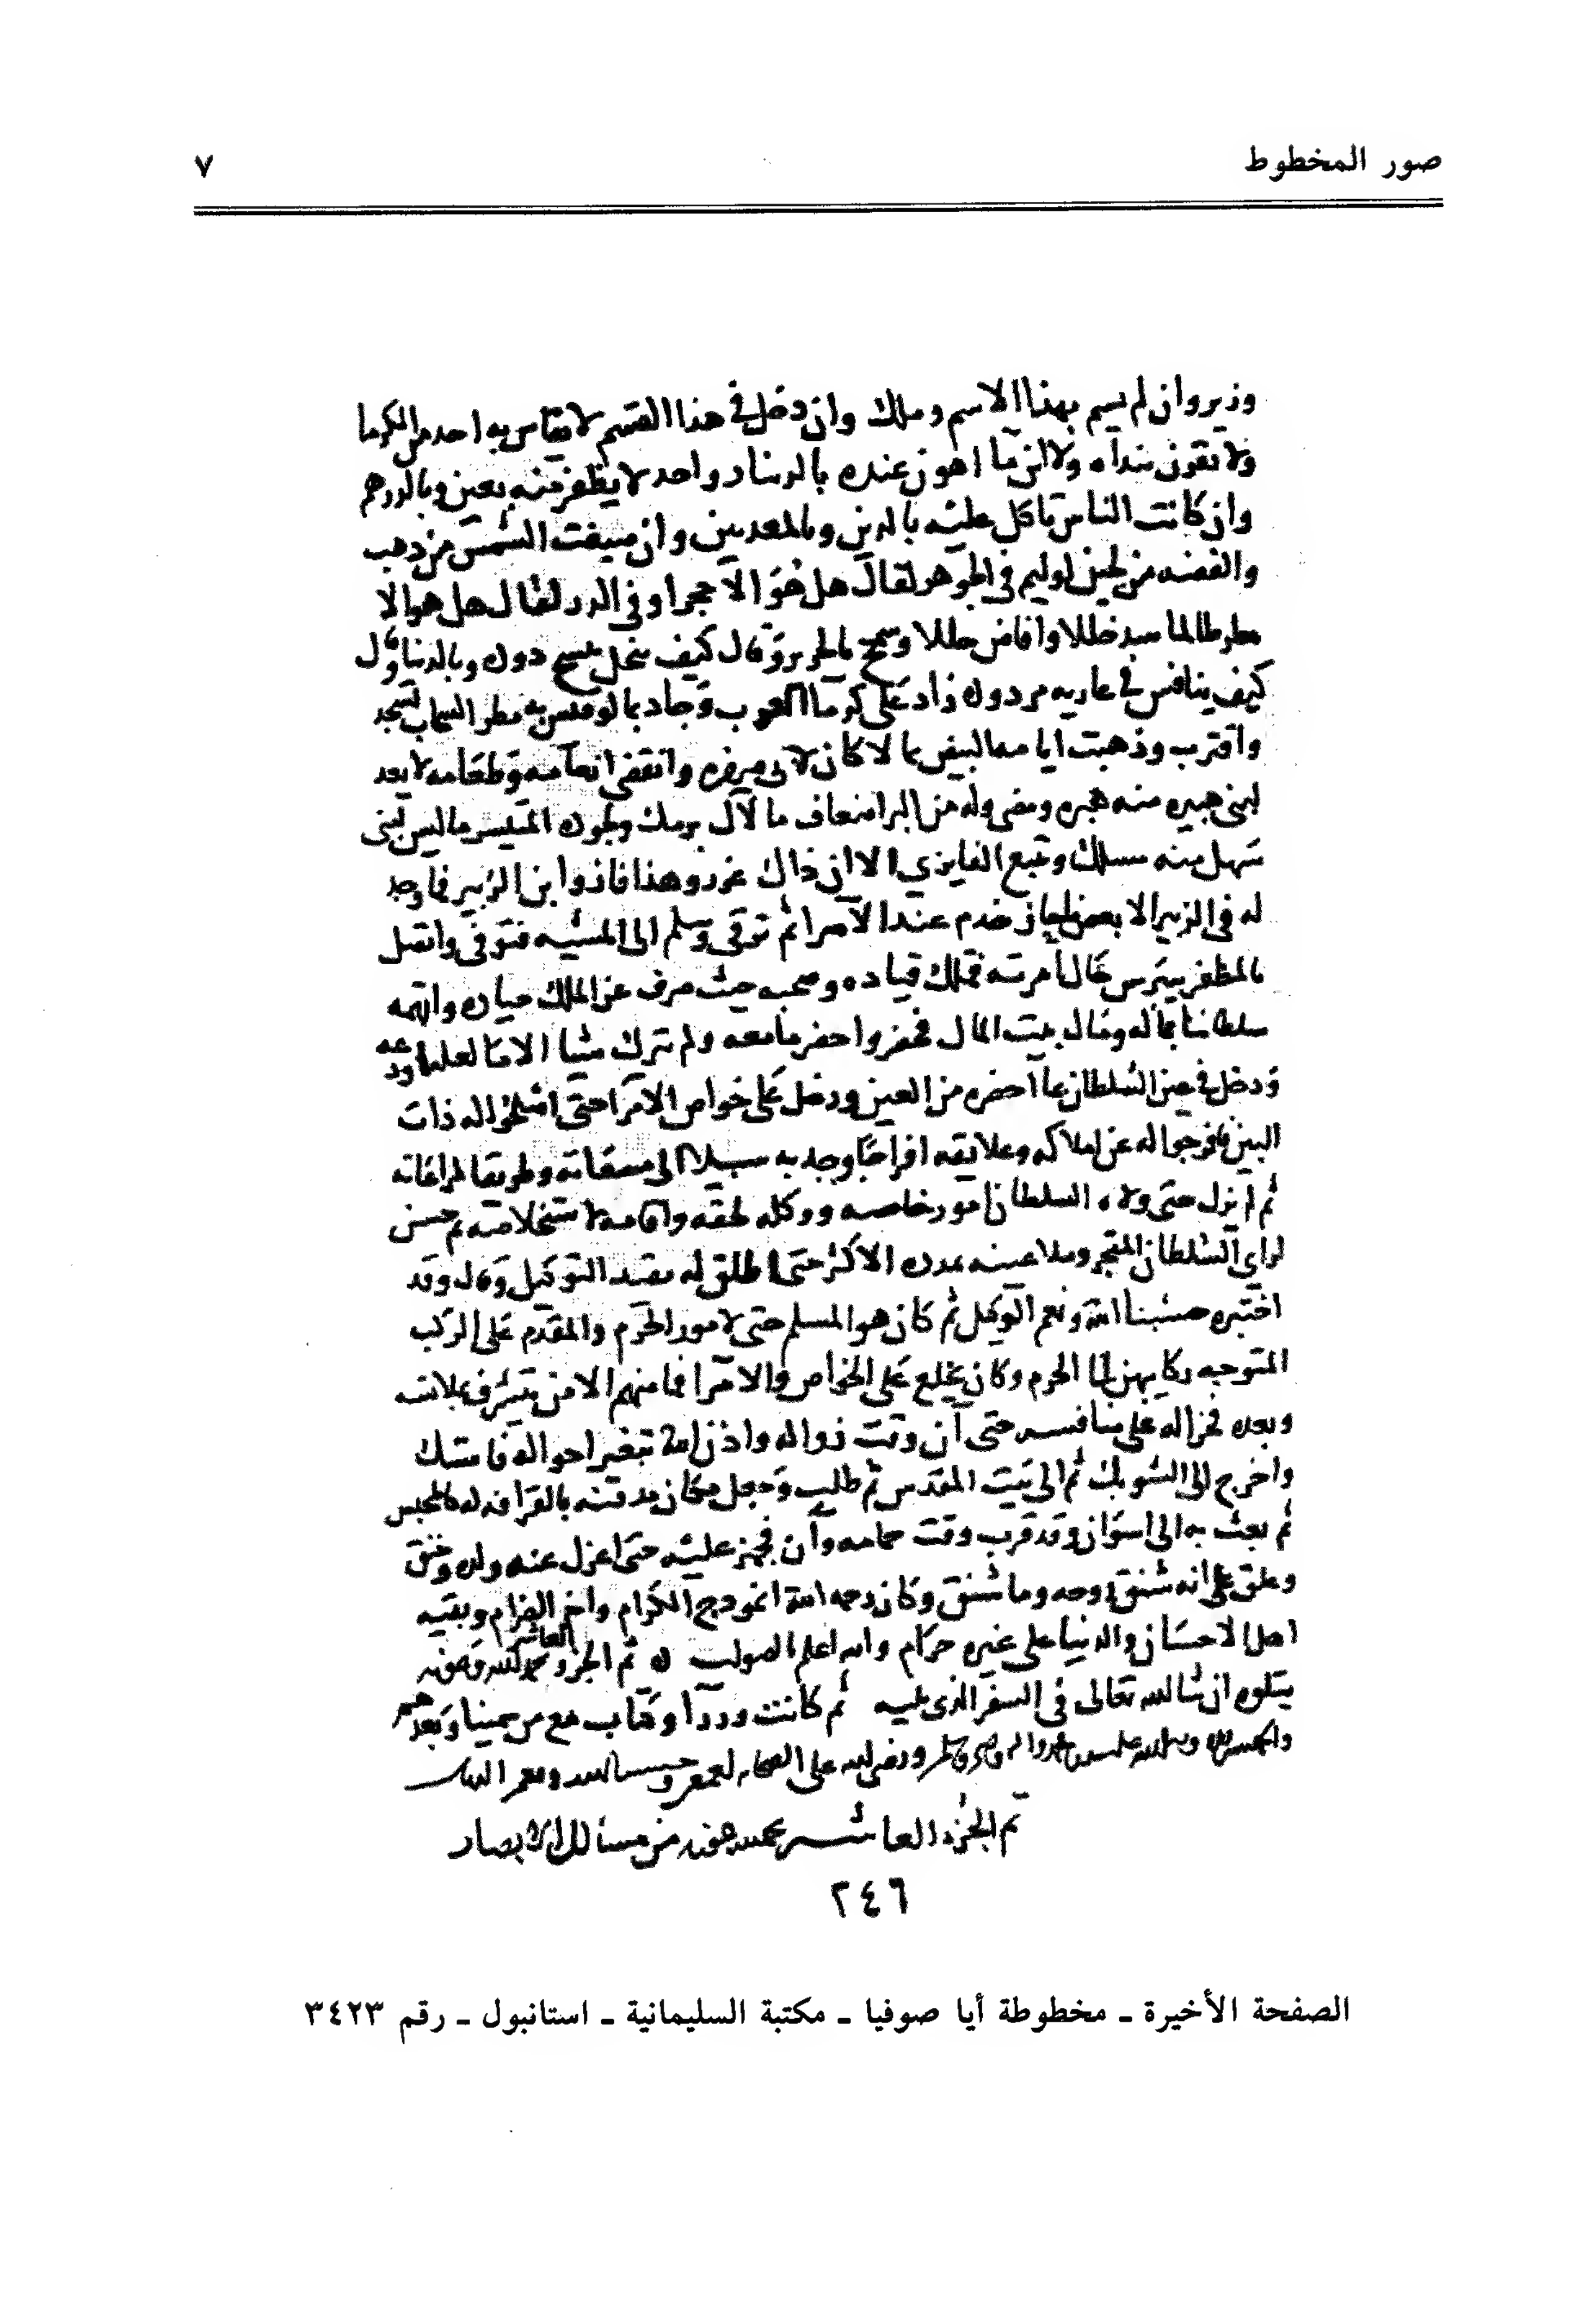 صور المخطوط ٧
وزير وان لم يسم بهذا الاسم وملك وان دخل في هذا القسم لا يقاس به احد من الكرما
ولا يقرن بنداه ولا لزما اهون عنده بالدينار واحد لا يظفر منه بعين وبالدرهم
وان كانت الناس تاكل عليه بالدين وبالمعدنين وان صيغت الشمس من ذهب
والفضه من لجين اوليم في الجوهر لقال هل هو الا حجر او في الدر لقال هل هو الا
مطر طالما سد خللا وافاض حللا وسمح بالحرير وقال كيف بنخل دود وبالدنيا وقال
كيف ينافس في عاريه مردوده زاد على كرما العرب وجاد بما لو قيس به مطر السحاب لسجد
واقترب وذهبت ايامه البيض بما لا كان لابي صفره وانقضى انعامه وطعامه لا يعد
لبني هبيره منه هبره ومضى وله من البر اضعاف ما لآل برمك ولجوده المتيسر ما ليس لبني
سهل منه مسلك وتبع الفايزي الا ان ذاك غرر وهذا فاز وابن الزبير فما وجد
له في الزبر الا بعض ما جاز خدم عند الامرا ثم توقى وسلم الى المشيه فتوفى واتصل
بالمظفر بيبرس خال امرته فملك قياده وصحبه حيث صرف عن الملك جياده واتهمه
سلطاننا بماله ومال بيت المال فحضر واحضر ما معه ولم يترك شيا الا ما لعله اودعه
ودخل في عين السلطان بما احضره من العين ودخل على خواص الامرا حتى اصلحوا له ذات
البين فافرجوا له عن املاكه وعلايقه افراجا وجد به سبيلا الى مصافاته وطريقا لمراعاته
ثم لم يزل حتى ولاه السلطان امور خاصه ووكله لحقه واقامه لاستخلاصه ثم حسن
لراي السلطان المتجر وملا عينه بمدد الاكثر حتى اطلق له مقيد التوكيل وقال وقد
اختبره حسبنا الله ونعم الوكيل ثم كان هو المسلم حتى لامور الحرم والمقدم على الركب
المتوجه ركايبهن الى الحرم وكان يخلع على الخواص والامرا فما منهم الا من يتشرف بملابسه
ويعده فخرا له على منافسه حتى آن وقت زواله واذن الله بتغير احواله فامسك
واخرج الى الشوبك ثم الى بيت المقدس ثم طلب وجعل مكان مدفنه بالقرافه له كالمحبس
ثم بعث به الى اسوان وقد قرب وقت حمامه وآن فجهز عليه حتى اعزل عنه ولده وخنق
وعلق على انه شنق روحه وما شنق وكان رحمه الله انموذج الكرام واخر الغرام وبقيه
اهل الاحسان والدنيا على غيره حرام والله اعلم بالصواب تم الجزو العاشر بحمد الله وعونه
يتلوه ان شا الله تعالى في السفر الذي يليه ثم كانت دررا وقاب مع من سمينا وبعدهم
والحمد لله وصلى الله على سيدنا محمد واله وصحبه وسلم ورضي الله على الصحابه اجمعين وحسبنا الله ونعم الوكيل
تم الجزء العاشر بحمد الله وعونه من مسالك الابصار
٢٤٦
الصفحة الأخيرة ـ مخطوطة أيا صوفيا ـ مكتبة السليمانية ـ استانبول ـ رقم ٣٤٢٣